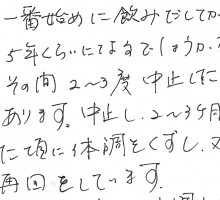 一番始めに飲みだしてか
5年くらいになるでしょうか、
その間 2〜3度 中止した
あります。中止し、2〜3ヶ月
た頃に体調をくずし、又
再回をしています。